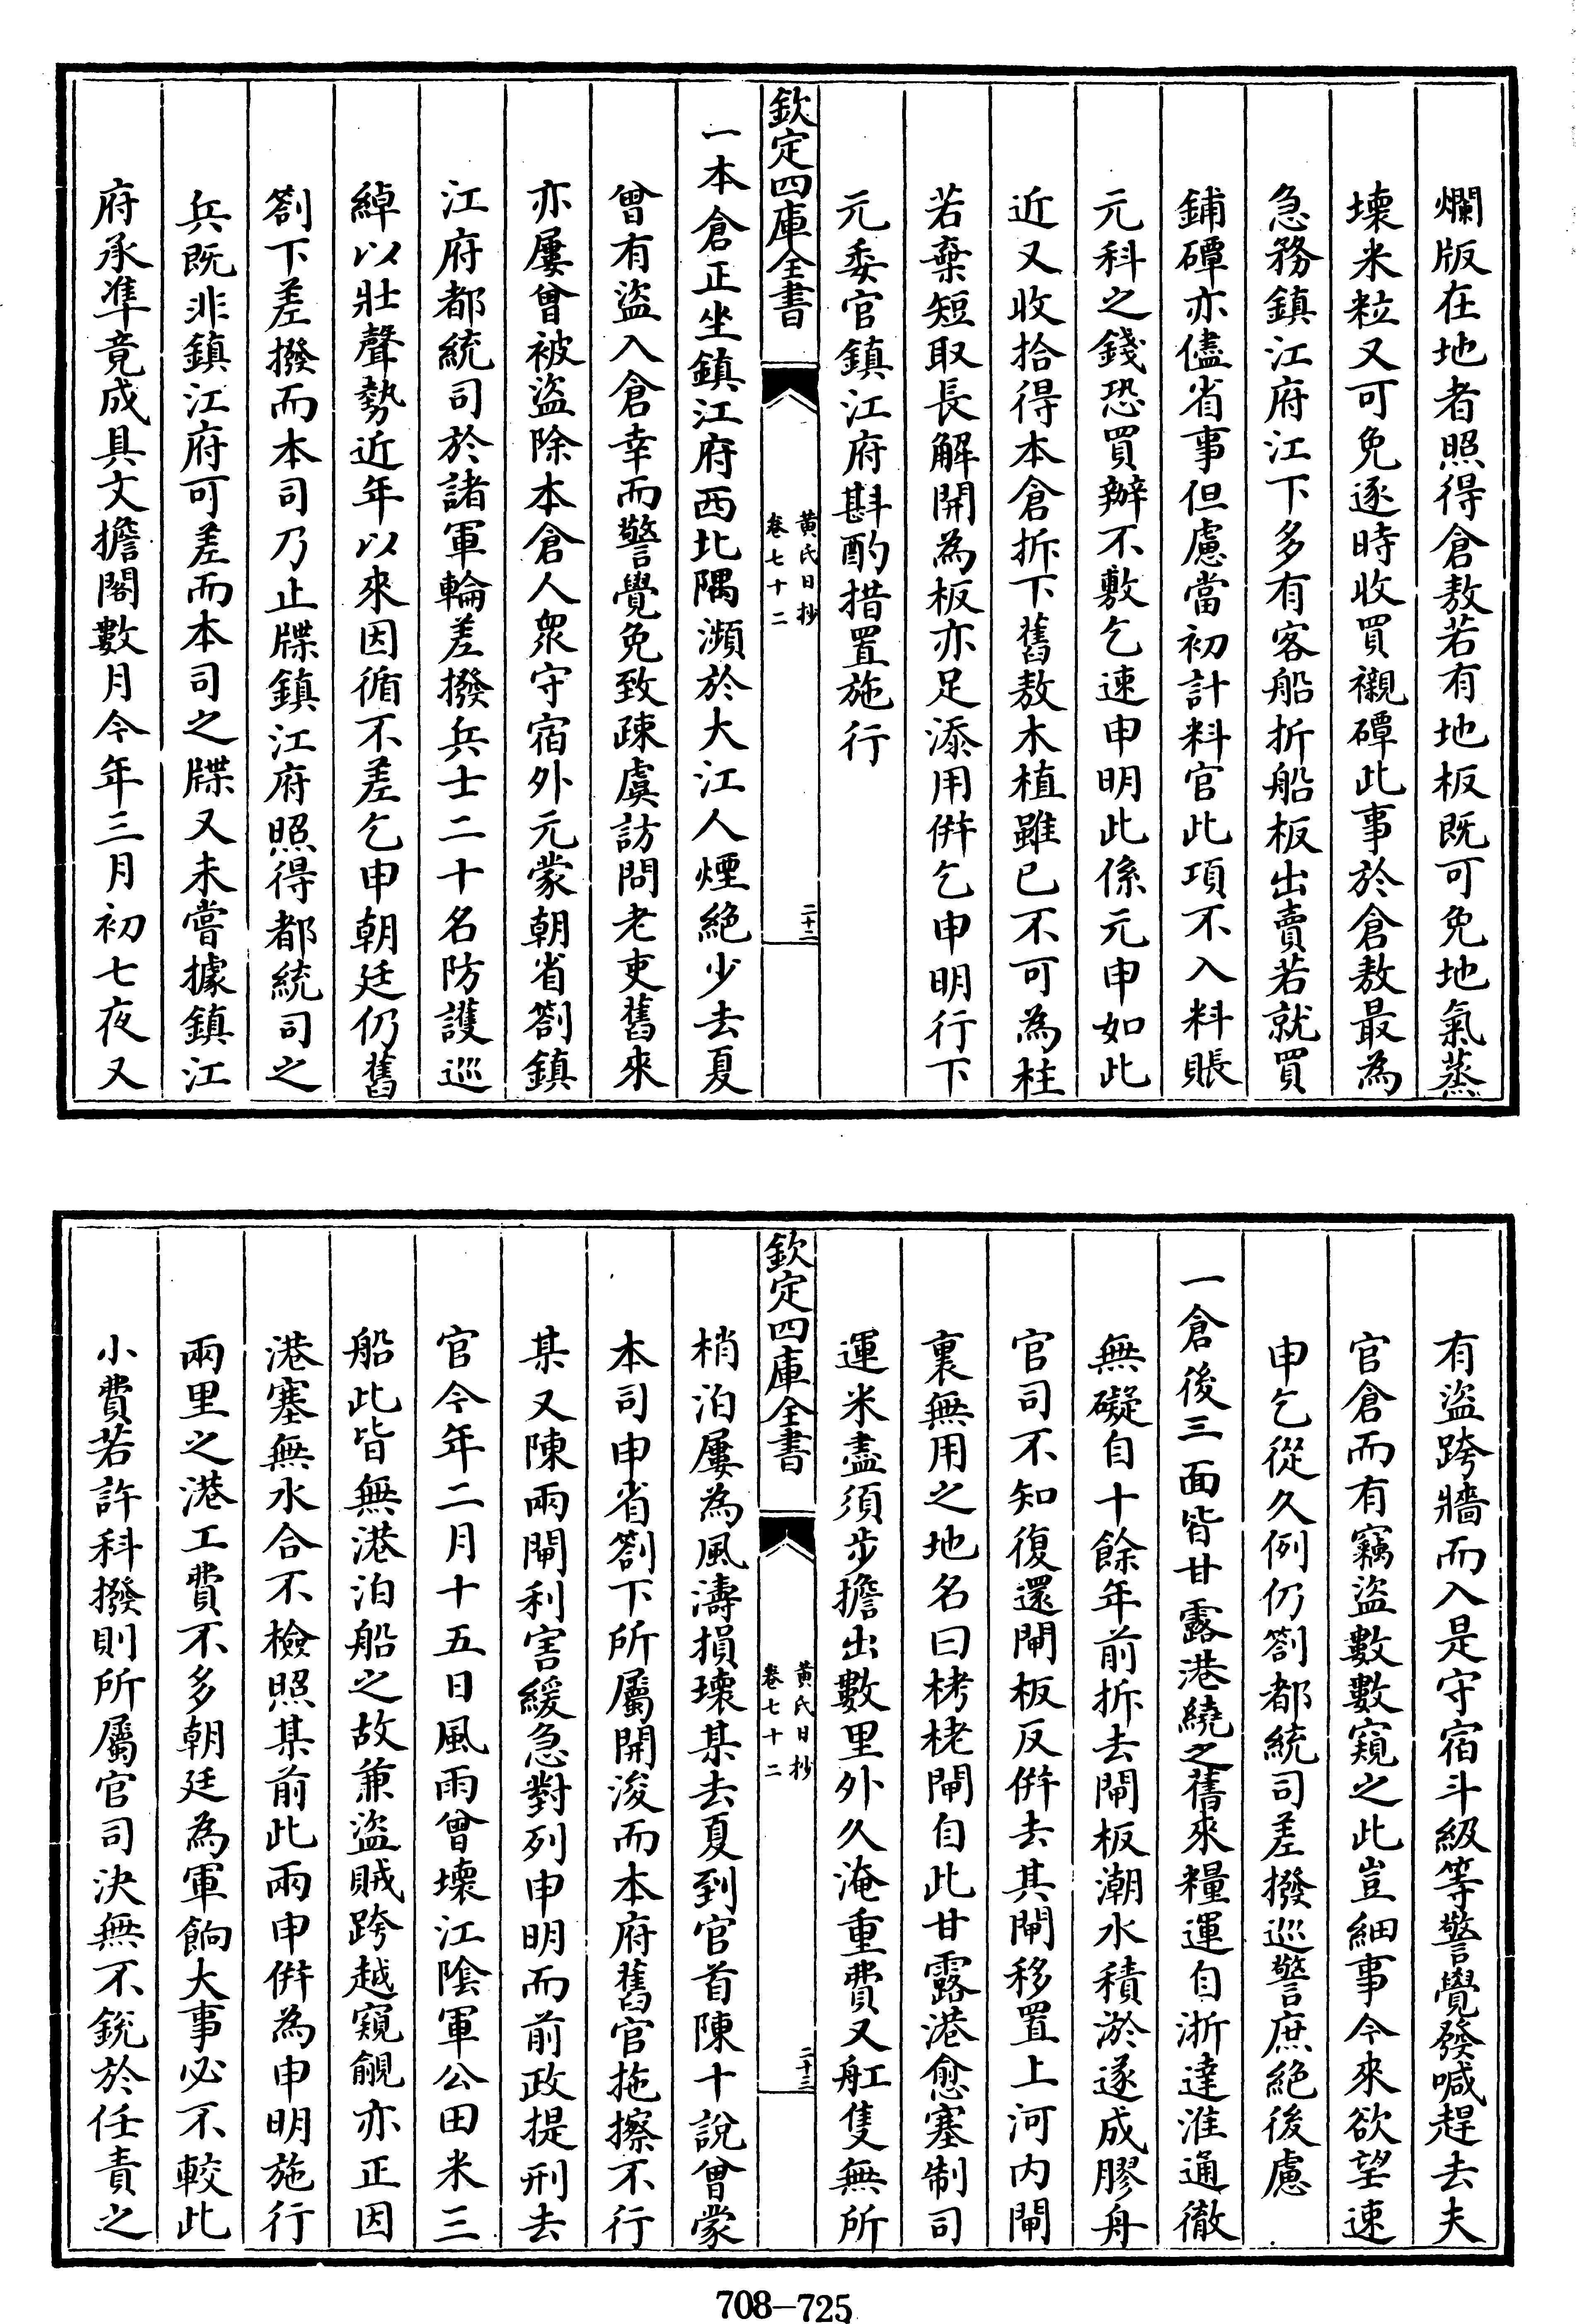 爛版在地者照得倉敖若有地板既可免地氣蒸
壞米粒又可免逐時收買襯磹此事於倉敖最為
急務鎮江府江下多有客船折船板出賣若就買
鋪磹亦儘省事但慮當初計料官此項不入料賬
元科之錢恐買辦不敷乞速申明此係元申如此
近又收拾得本倉拆下舊敖木植雖已不可為柱
若棄短取長解開為板亦足添用併乞申明行下
元委官鎮江府斟酌措置施行
欽定四庫全書
黃氏日抄
卷七十二
二十二
一本倉正坐鎮江府西北隅瀕於大江人煙絕少去夏
曾有盜入倉幸而警覺免致疎虞訪問老吏舊來
亦屢曾被盜除本倉人衆守宿外元蒙朝省劄鎮
江府都統司於諸軍輪差撥兵士二十名防護巡
綽以壯聲勢近年以來因循不差乞申朝廷仍舊
劄下差撥而本司乃止牒鎮江府照得都統司之
兵既非鎮江府可差而本司之牒又未嘗據鎮江
府承準竟成具文擔閣數月今年三月初七夜又
有盜跨牆而入是守宿斗級等警覺發喊趕去夫
官倉而有竊盜數數窺之此豈細事今來欲望速
申乞從久例仍劄都統司差撥巡警庶絕後慮
一倉後三面皆甘露港繞之舊來糧運自浙達淮通徹
無礙自十餘年前拆去閘板潮水積淤遂成膠舟
官司不知復還閘板反併去其閘移置上河內閘
裏無用之地名曰栲栳閘自此甘露港愈塞制司
運米盡須步擔出數里外久淹重費又舡隻無所
欽定四庫全書
黃氏日抄
卷七十二
二十三
梢泊屢為風濤損壞某去夏到官首陳十說曾蒙
本司申省劄下所屬開浚而本府舊官拖擦不行
某又陳兩閘利害緩急對列申明而前政提刑去
官今年二月十五日風雨曾壞江陰軍公田米三
船此皆無港泊船之故兼盜賊跨越窺覦亦正因
港塞無水合不檢照某前此兩申併為申明施行
兩里之港工費不多朝廷為軍餉大事必不較此
小費若許科撥則所屬官司決無不銳於任責之
708—725